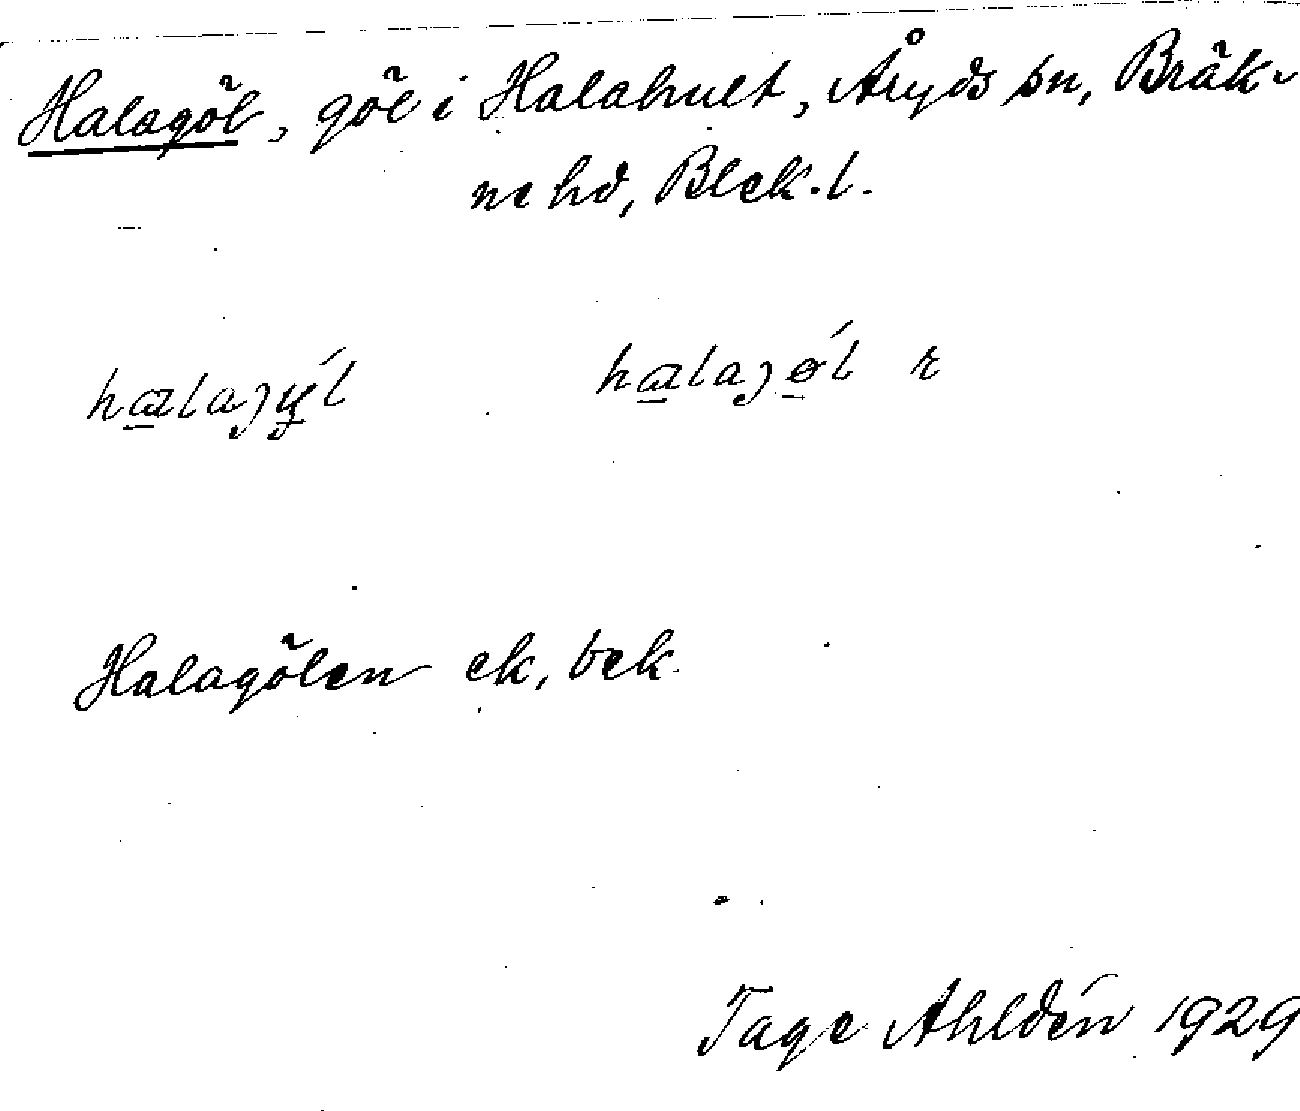 Halagöl, göl i Halahult, Åryds sn, Bräk-
ne hd, Blek. l.
hɑlaȷý̲l hɑlaȷǿ̲l r
Halagölen ek, bek.
Tage Ahldén 1929